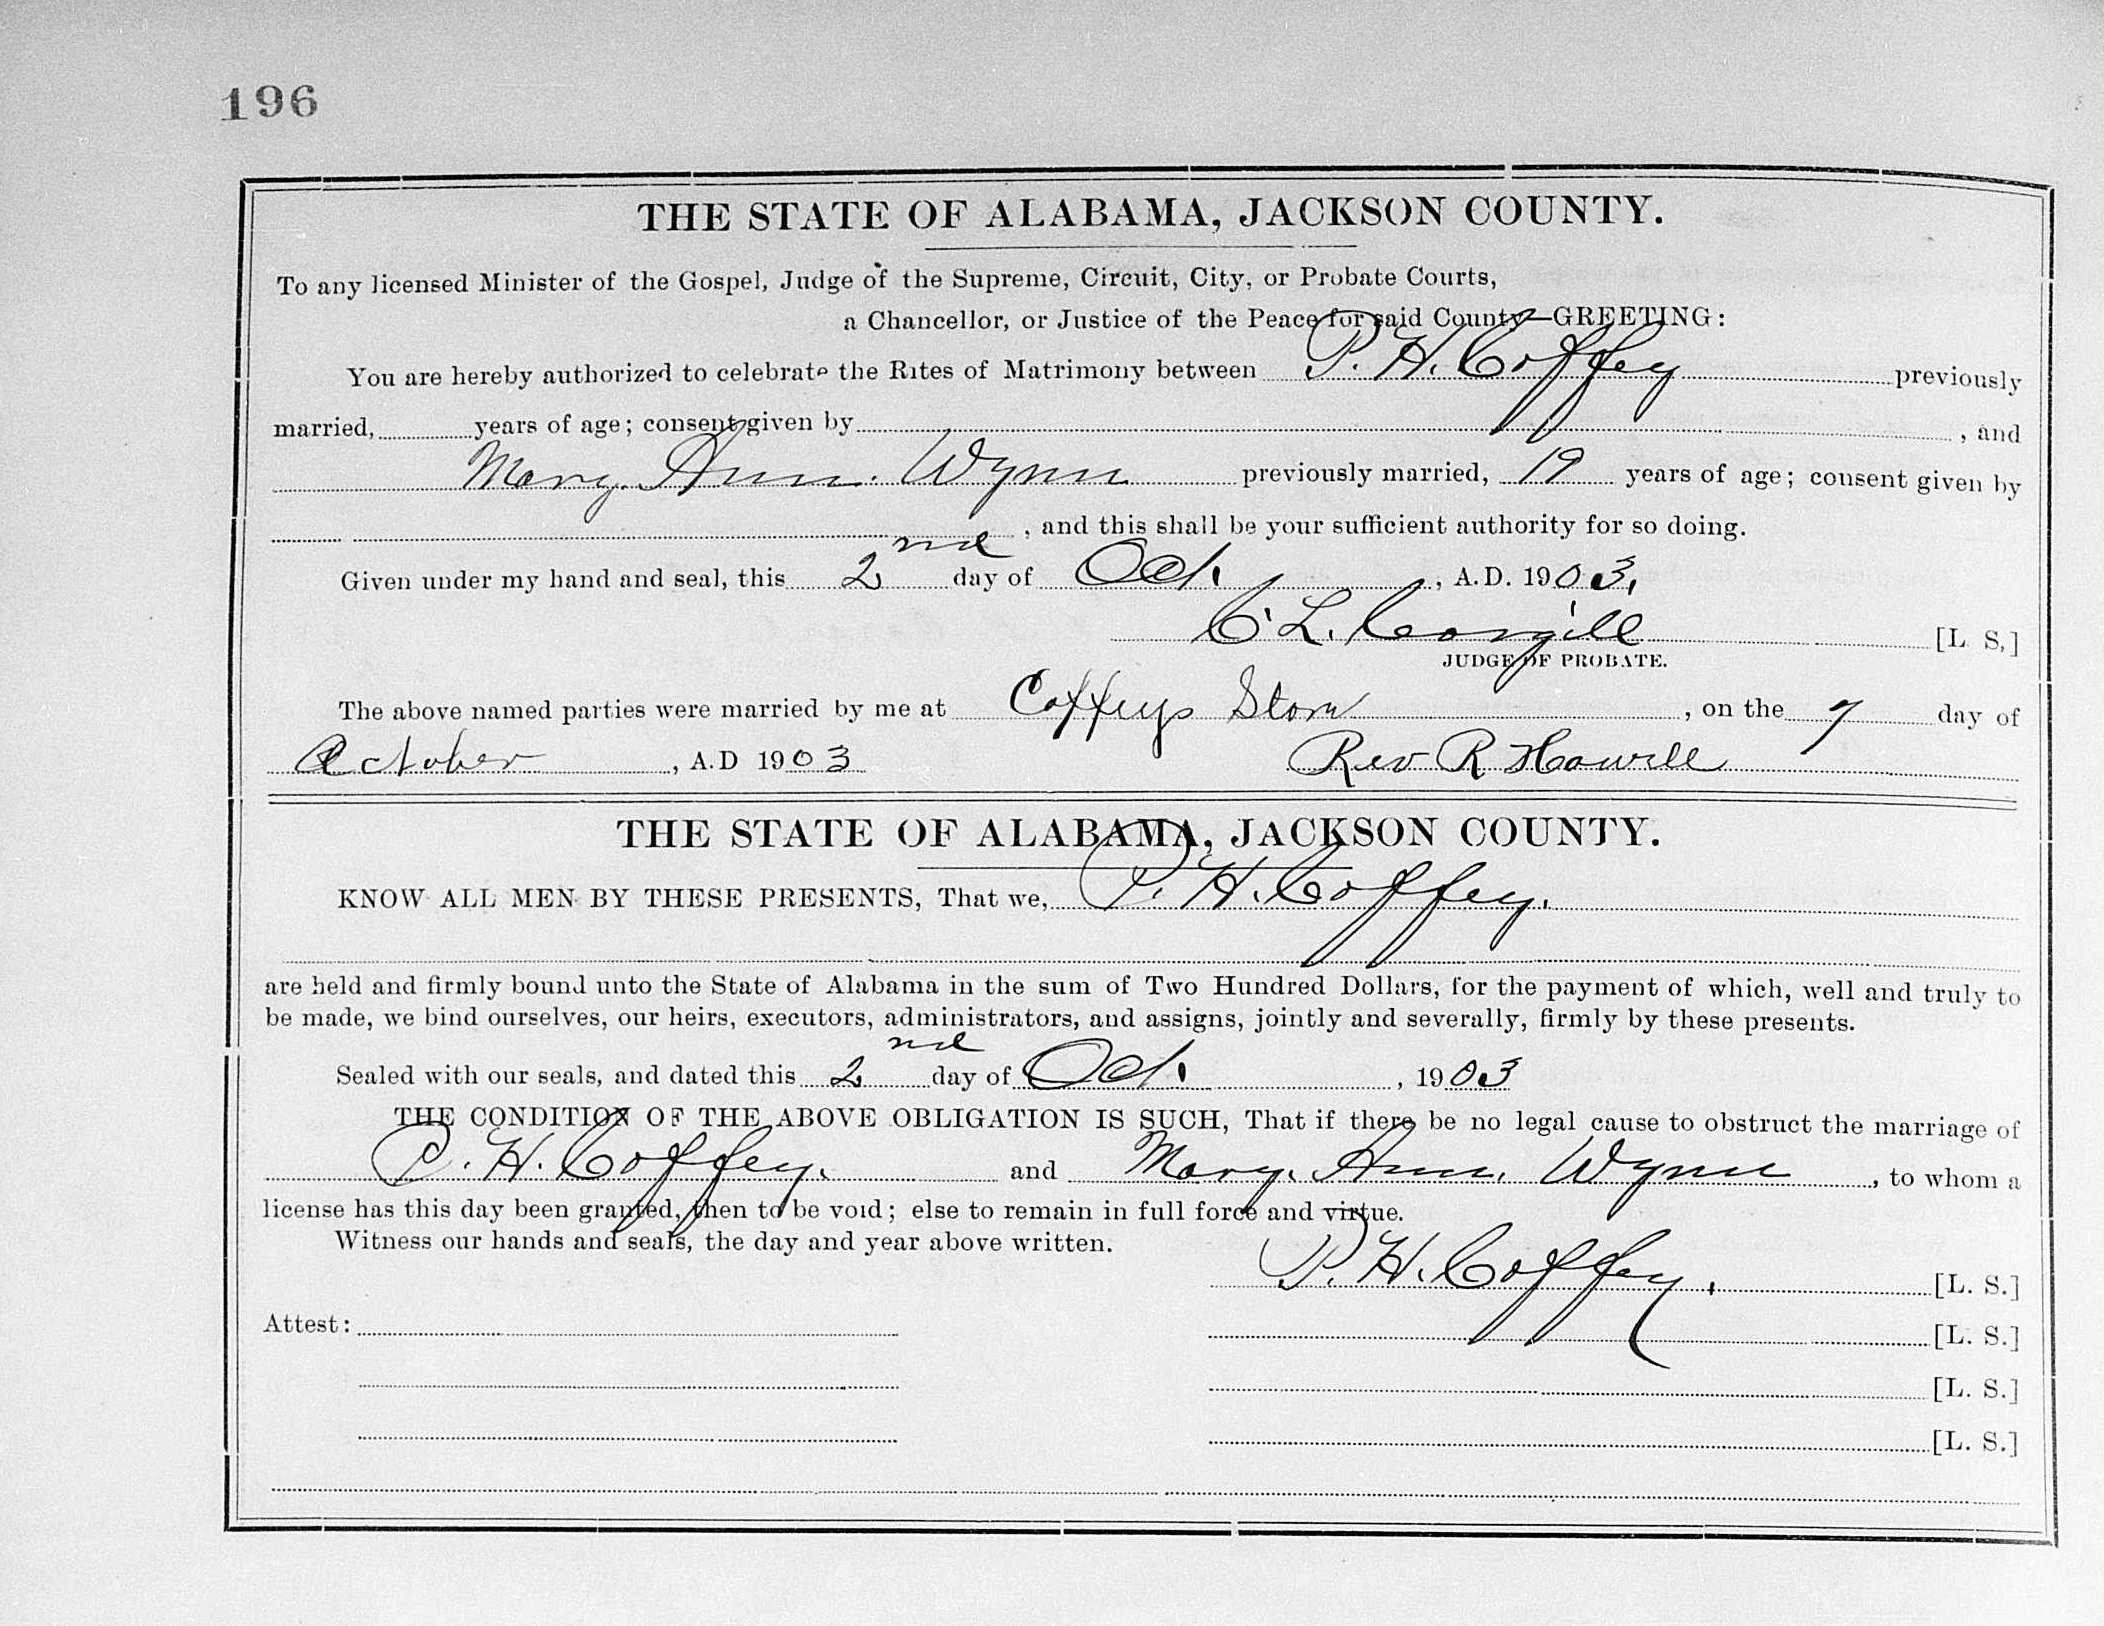 196
THE STATE OF ALABAMA, JACKSON COUNTY.
To any licensed Minister of the Gospel, Judge of the Supreme, Circuit, City, or Probate Courts,
a Chancellor, or Justice of the Peace for said County—GREETING:
You are hereby authorized to celebrate the Rites of Matrimony between P. H. Coffey previously
married, years of age; consent given by , and
Mary Ann Wynn previously married, 19 years of age; consent given by
, and this shall be your sufficient authority for so doing.
Given under my hand and seal, this 2nd day of Oct. , A.D. 1903.
C. L. Cargill [L. S.]
JUDGE OF PROBATE.
The above named parties were married by me at Coffeys Store , on the 7 day of
October , A.D 1903 Rev R Howell
THE STATE OF ALABAMA, JACKSON COUNTY.
KNOW ALL MEN BY THESE PRESENTS, That we, P. H. Coffey.
are held and firmly bound unto the State of Alabama in the sum of Two Hundred Dollars, for the payment of which, well and truly to
be made, we bind ourselves, our heirs, executors, administrators, and assigns, jointly and severally, firmly by these presents.
Sealed with our seals, and dated this 2nd day of Oct. , 1903
THE CONDITION OF THE ABOVE OBLIGATION IS SUCH, That if there be no legal cause to obstruct the marriage of
P. H. Coffey. and Mary. Ann. Wynn , to whom a
license has this day been granted, then to be void; else to remain in full force and virtue.
Witness our hands and seals, the day and year above written.
P. H. Coffey. [L. S.]
Attest: [L. S.]
[L. S.]
[L. S.]